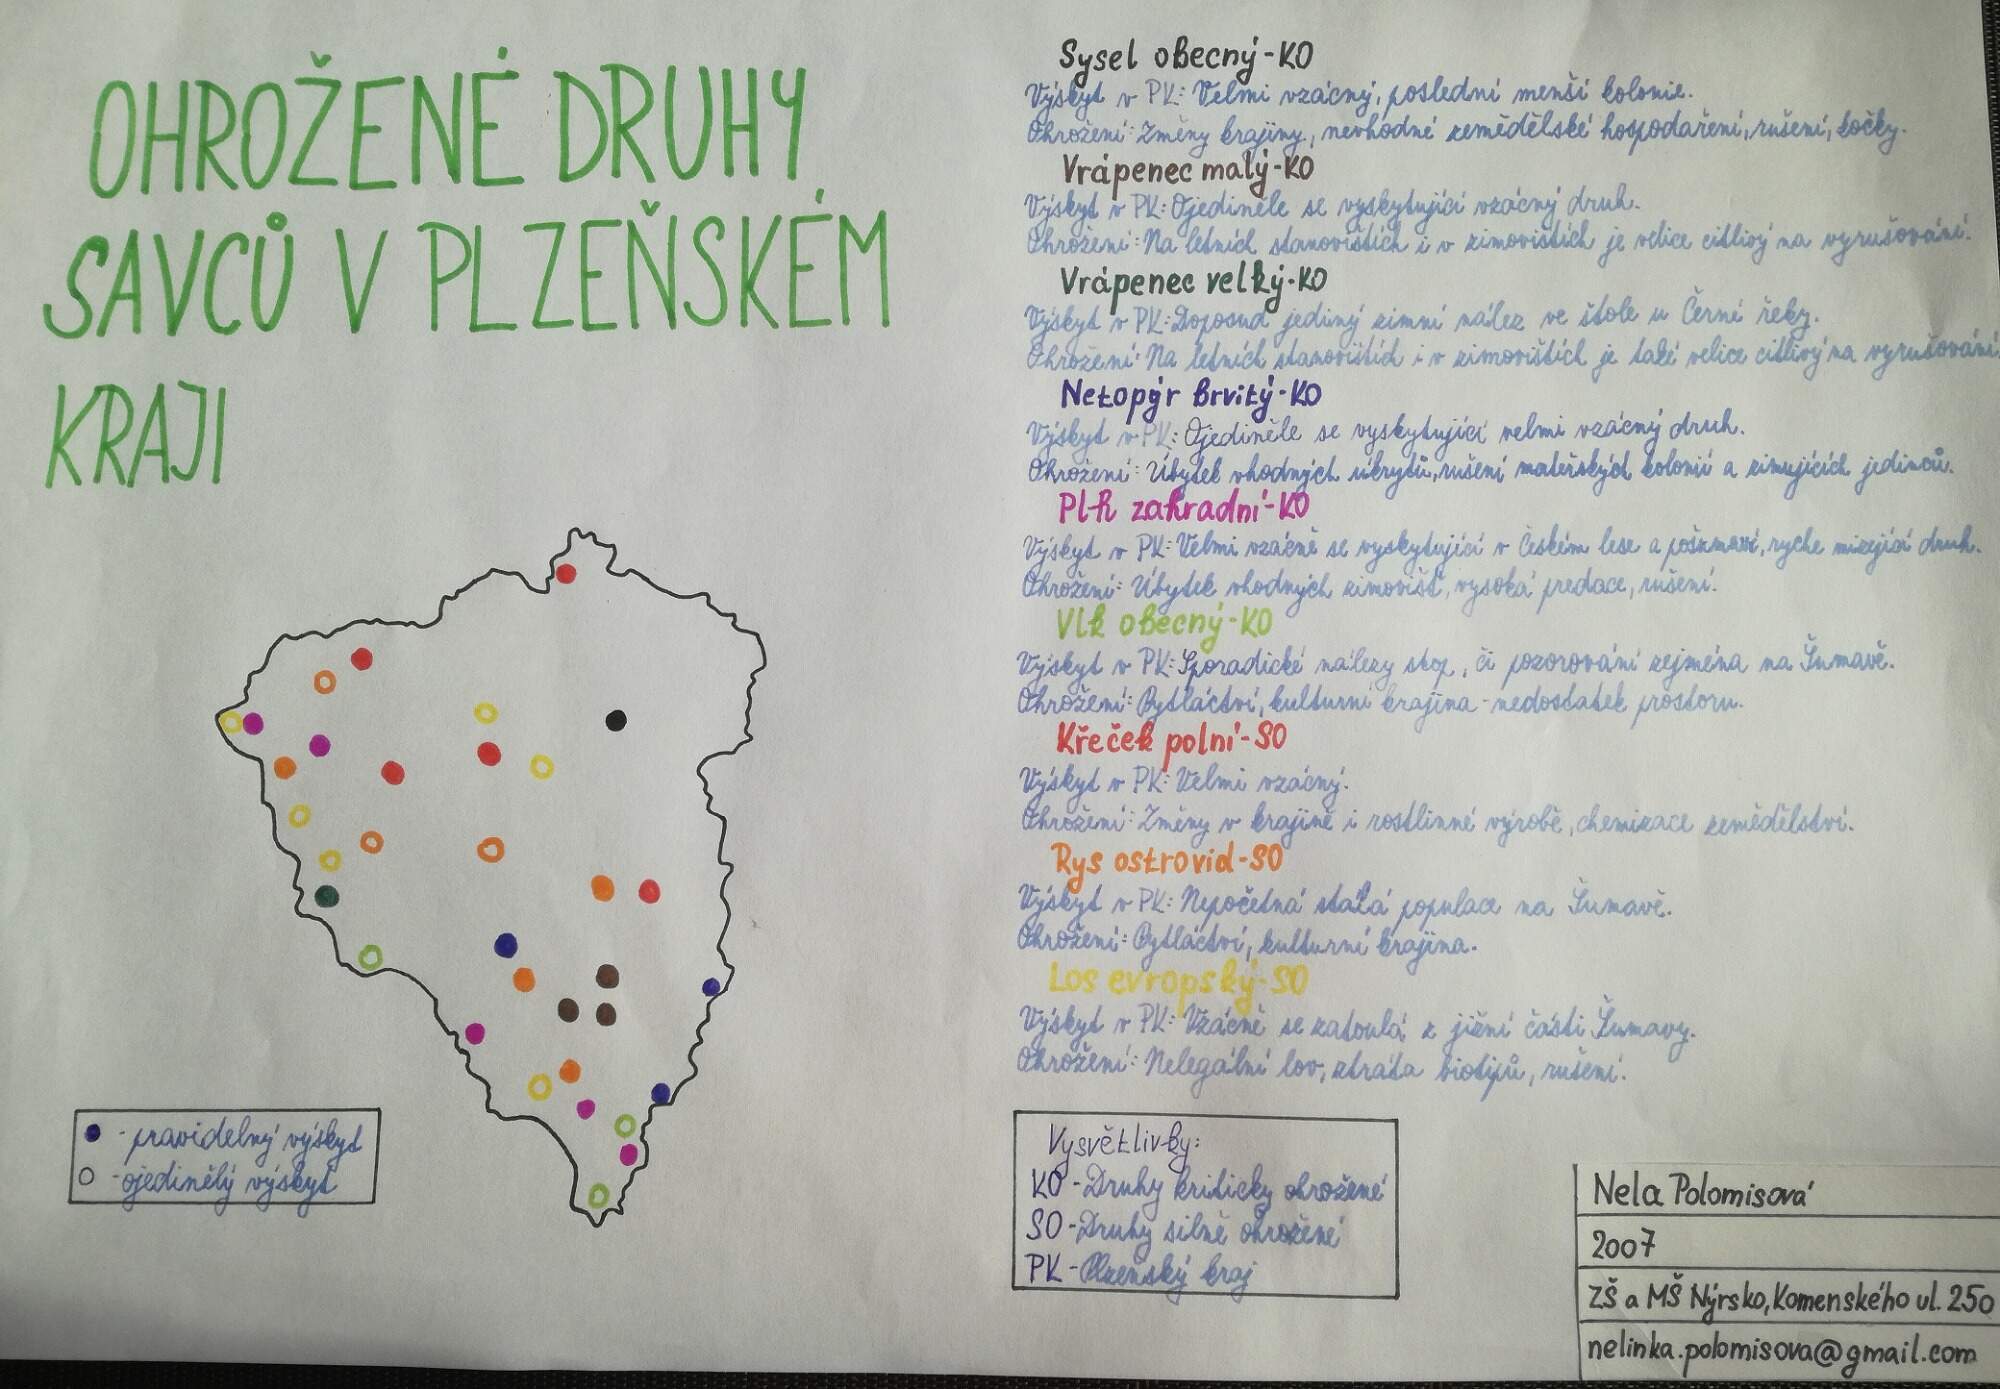 OHROŽENÉ DRUHY
SAVCŮ V PLZEŇSKÉM
KRAJI
Sysel obecný-KO
Výskyt v PK: Velmi vzácný, poslední menší kolonie.
Ohrožení: Změny krajiny, nevhodné zemědělské hospodaření, rušení, kočky.
Vrápenec malý-KO
Výskyt v PK: Ojediněle se vyskytující vzácný druh.
Ohrožení: Na letních stanovištích i v zimovištích je velice citlivý na vyrušování.
Vrápenec velký-KO
Výskyt v PK: Doposud jediný zimní nález ve štole u Černé řeky.
Ohrožení: Na letních stanovištích i v zimovištích je také velice citlivý na vyrušování.
Netopýr brvitý-KO
Výskyt v PK: Ojediněle se vyskytující velmi vzácný druh.
Ohrožení: Úbytek vhodných úkrytů, rušení mateřských kolonií a zimujících jedinců.
Plch zahradní-KO
Výskyt v PK: Velmi vzácně se vyskytující v Českém lese a pošumaví, ryche mizející druh.
Ohrožení: Úbytek vhodných zimovišť, vysoká predace, rušení.
Vlk obecný-KO
Výskyt v PK: Sporadické nálezy stop, či pozorování zejména na Šumavě.
Ohrožení: Pytláctví, kulturní krajina - nedostatek prostoru.
Křeček polní-SO
Výskyt v PK: Velmi vzácný.
Ohrožení: Změny v krajině i rostlinné výrobě, chemizace zemědělství.
Rys ostrovid-SO
Výskyt v PK: Nepočetná stálá populace na Šumavě.
Ohrožení: Pytláctví, kulturní krajina.
Los evropský-SO
Výskyt v PK: Vzácně se zatoulá z jižní části Šumavy.
Ohrožení: Nelegální lov, ztráta biotipů, rušení.
- pravidelný výskyt
- ojedinělý výskyt
Vysvětlivky:
KO - Druhy kriticky ohrožené
SO - Druhy silně ohrožené
PK - Plzeňský kraj
Nela Polomisová
2007
ZŠ a MŠ Nýrsko, Komenského ul. 250
nelinka.polomisova@gmail.com